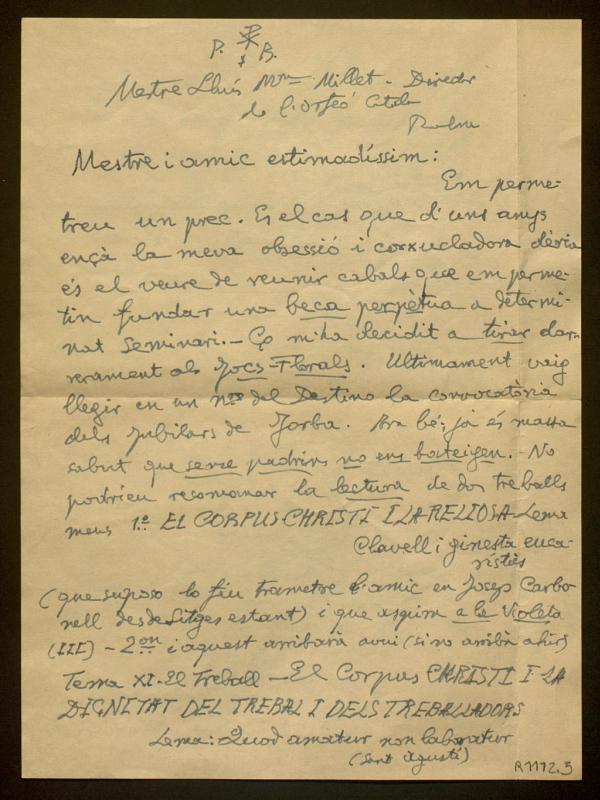 P. B.
Mestre Lluís Mª Millet - Director
de l'Orfeó Català
Mestre i amic estimadíssim:
Em perme-
treu un prec. Es el cas que d'uns anys
ençà la meva obsessió i corxucladora dèria
és el veure de reunir cabals que em perme-
tin fundar una beca perpètua a determi-
nat Seminari. - Ço m'ha decidit a tirar dar-
rerament als Jocs-Florals. Ultimament vaig
llegir en un nº del Destino la convocatòria
dels Jubilars de Jorba. Ara bé; ja és massa
sabut que sense padrins no ens bategen. No
podrieu recomanar la lectura de dos treballs
meus 1.º EL CORPUS-CHRISTI I LA RELLOSA - Lema
Clavell i ginesta euca-
rístics
(que suposo lo féu trametre l'amic en Josep Carbo-
nell desde Sitges estant) i que aspira a la Violeta
(III) - 2on i aquest arribarà avui (si no arribà ahir)
Tema XI - El Treball - El Corpus CHRISTI I LA
DIGNITAT DEL TREBAL I DELS TREBALLADORS
Lema: Quod amatur non laboratur
(Sant Agustí)
R1172.3